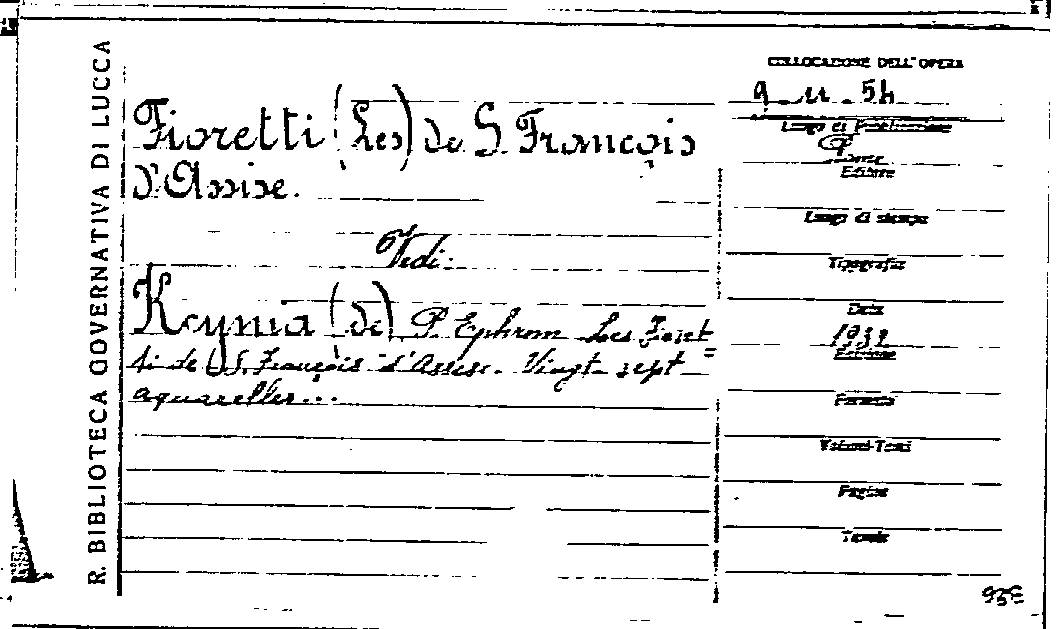 R. BIBLIOTECA GOVERNATIVA DI LUCCA
Fioretti (Les) de S. François
d'Assise.
Vedi:
Kcynia (de) P. Ephrem Les Foret=
ti de S. François d'Assise. Vingt-sept
aquarelles...
COLLOCAZIONE DELL'OPERA
Luogo di Pubblicazione
Editore
Luogo di stampa
Tipografia
Data
1932
Edizione
Formato
Volumi-Tomi
Pagine
Tavole